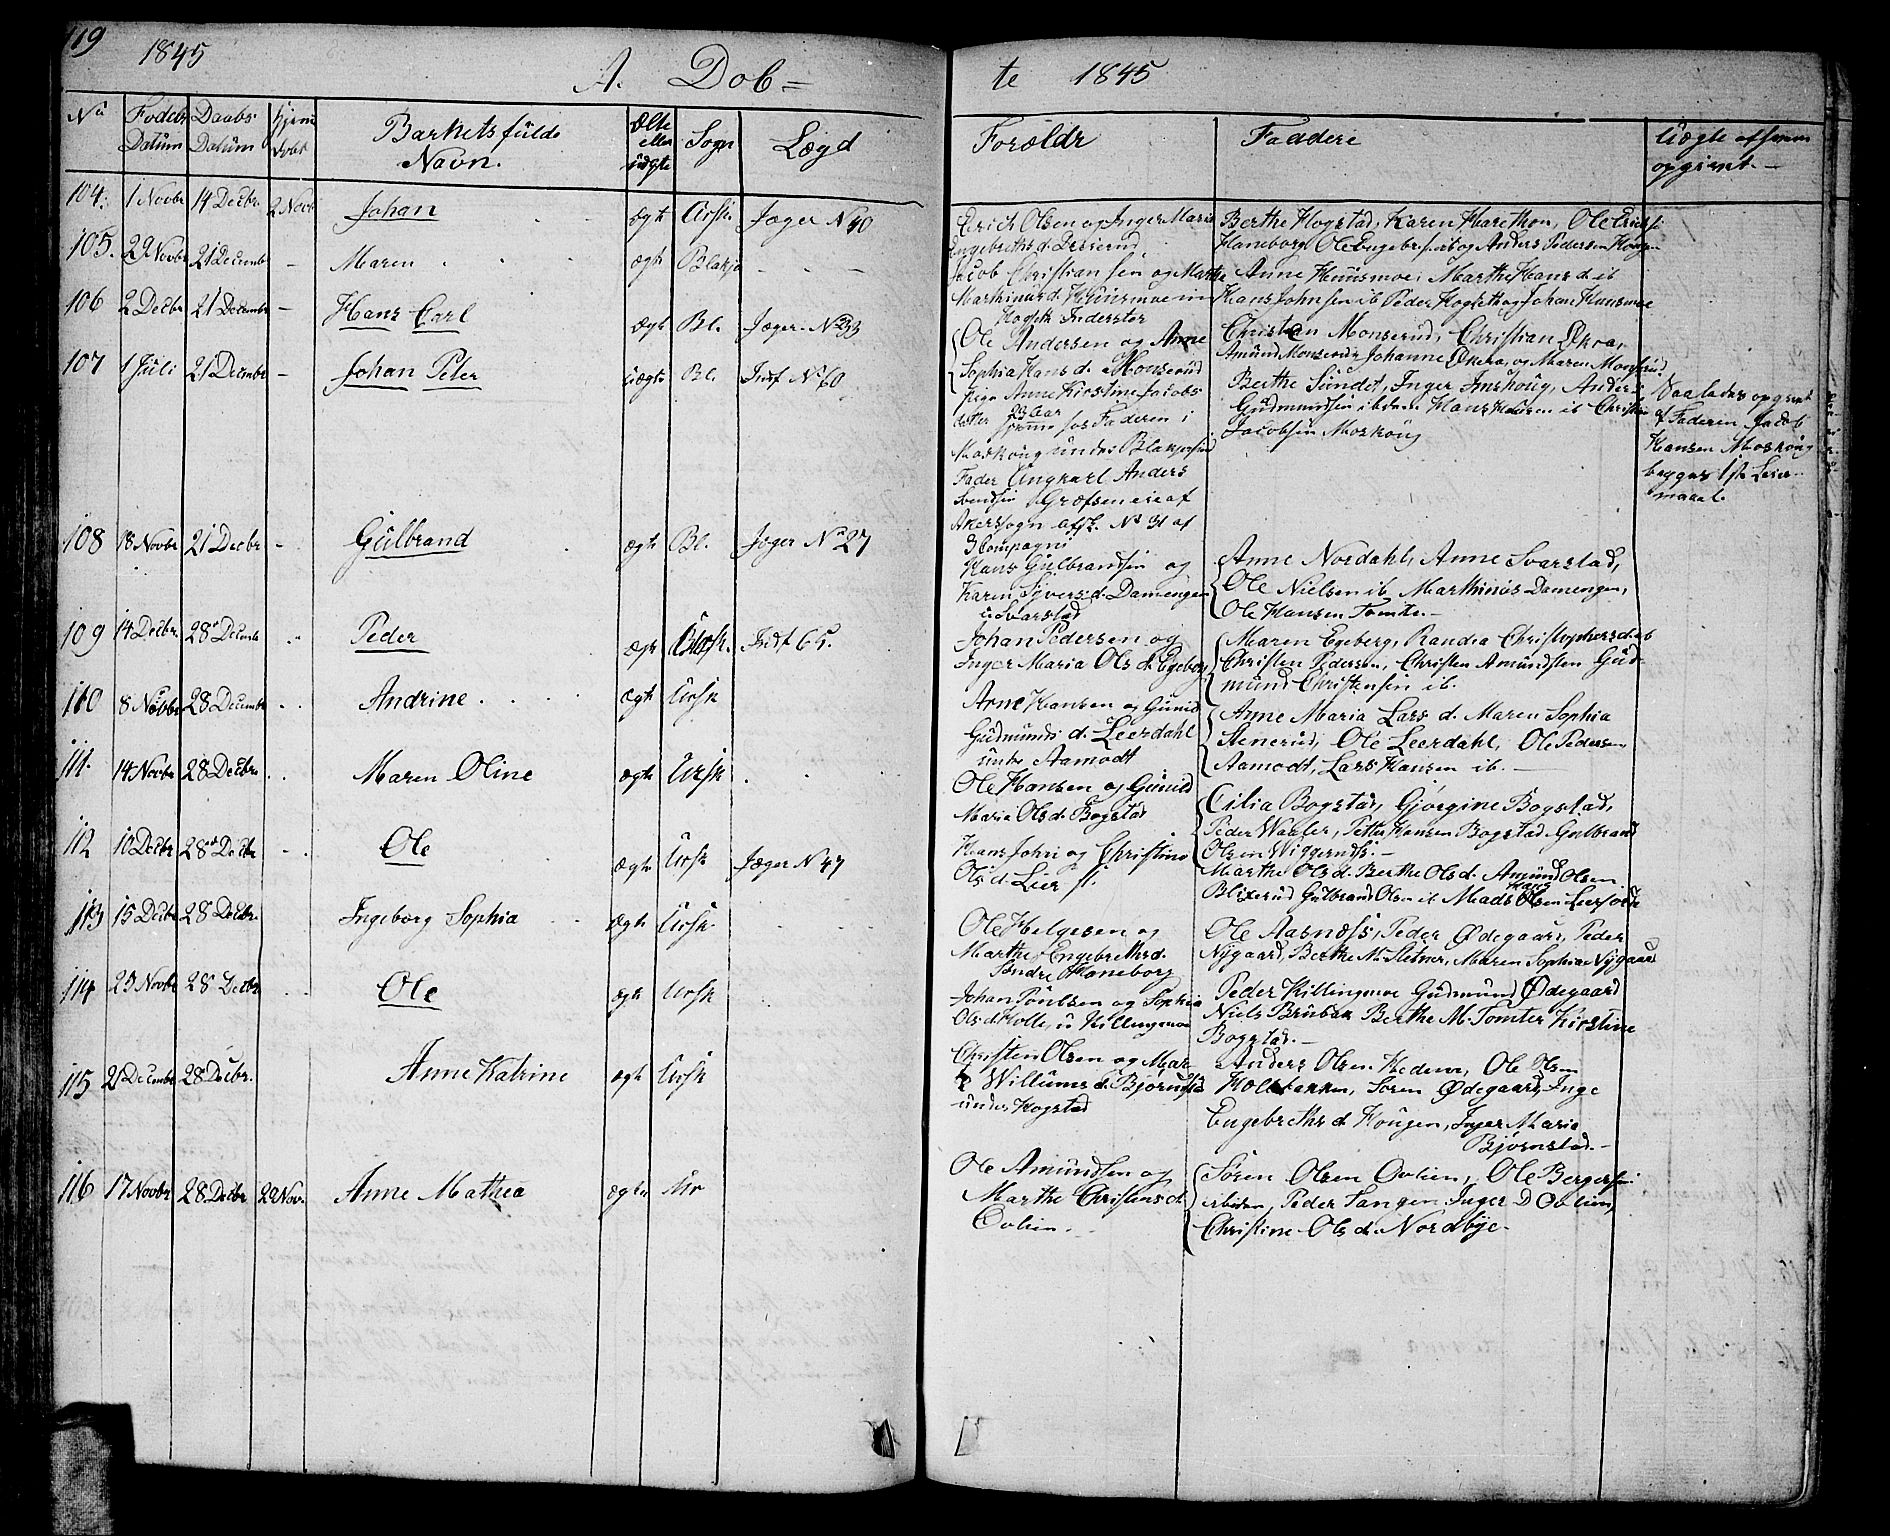 119 1845 A. Dob= te 1845
No Födsls Datum Daabs Datum hjeme dobt Barnets fulde Navn. Ælte eller uægte Sogn Lægd Forældr Faddere Uægte af hvem opgivet.
104. 1 Novbr 14 Decbr. 2 Novb Johan ægte Ursk. Jæger No 40
Erich Olsen og Inger Maria
Engebrethsd.
Berthe Hogstad, Karen Harethon, Ole Erichs.
Haneborg Ole Engebrthsen og Anders Pedersen Hougen
105. 29 Novbr 21 Decemb - Maren ægte Blakjer
Jacob Christiansen og Marthe
Marthinusd. Huusmoe
Anne Huusmoe, Marthe Hansd. ib
Hans Johnsen ib Peder Hogseth og Johan Huusmoe
106 2 Decbr 21 Decembr - Hans Carl Ægte Bl. Jæger. No 33
Ole Andersen og Anne
Sophia Hansd. Monserud
Christian Monserud, Christian Økra,
Amund Monserud Johanne Økera, og Maren Monserud
107 1 Juli 21 Decembr - Johan Peter Uægte Bl. Indf No 60
pige Anne Kirstine Jacobs
datter 23 Aar hos Faderen i
Moskoug under Blakjer
Fader Ungkarl Anders
Svendsen Græfseneie af
Akersogn No 31 af
3 Compagni
Berthe Sundet, Inger Imshoug, Anders
Gudmundsen ibidem Hans Hansen ib Christian
Jacobsen Moskoug
Saaledes opgivet
af Faderen Jacob
Hansen Moskoug
begges 1ste Leier-
maal.
108 18 Novbr 21 Decbr - Gulbrand ægte Bl. Jæger No 27
Hans Gulbrandsen og
Karen Syversd. Damengen
u Svarstad
Anne Nordahl, Anne Svarstad,
Ole Nielsen ib Marthinus Damengen,
Ole Hansen Tomte.-
109 14 Decbr. 28 Decemb Peder ægte Ursk. Indf 65.
Johan Pedersen og
Inger Maria Olsd. Egeberg
Maren Egeberg, Randia Christophersd. ib
Christen Pedersen, Christen Amundsten Gud-
mund Christensen ib.
110 8 Novbr 28 Decembr Andrine ægte Ursk
Arne Hansen og Gunild
Gudmundsd. Leerdahl
under Aamodt
Anne Maria Larsd. Maren Sophia
Stenerud, Ole Leerdahl, Ole Pedersen
Aamodt, Lars Hansen ib.-
111. 14 Novbr 28 Decbr Maren Oline ægte Ursk
Ole Hansen og Gunild
Maria Olsd. Bogstad
Cilia Bogstad, Gjørgine Bogstad,
Peder Waaler, Petter Hansen Bogstad Gulbrand
Olsen
112 10 Decbr 28 Decbr Ole ægte Ursk Jæger No 47
Hans John og Christine
Olsd. Lier
Marthe Olsd. Berthe Olsd. Amund Olsen
Blixrud Gulbrand Olsen ib Mads Hans Olsen Lierfosse
113 15 Decbr 28 Decbr. Ingeborg Sophia ægte Ursk.
Ole Helgesen og
Marthe Engebrethsd.
Søndre Haneborg
Ole Aasnæss, Peder Ødegaard, Peder
Nygaard, Berthe M. Stener, Maren Sophia Nygaard
114 23 Novbr 28 Decbr Ole ægte Ursk
Johan Poulsen og Sophia
Olsd. Holle, u Killingmoe
Peder Killingmoe Gudmund Ødegaard
Niels Brubak Berthe M. Tomter Kirstine
Bogstad.-
115 21 Decembr 28 Decbr. Anne Katrine ægte Ursk
Christen Olsen og Mar
Willumsd. Bjørnstad
under Hogstad
Anders Olsen Hedem, Ole Olsen
Holtbakken, Søren Ødegaard, Inge
Engebrethsd Hougen, Inger Maria
Bjørnstad.-
116 17 Novbr 28 Decbr 22 Nov. Anne Mathea ægte Ur
Ole Amundsen og
Marthe Christensd.
Ovlien
Søren Olsen Ovlien, Ole Bergersen
ibidem, Peder Langen, Inger D Ovlien,
Christine Olsd. Nordbye.